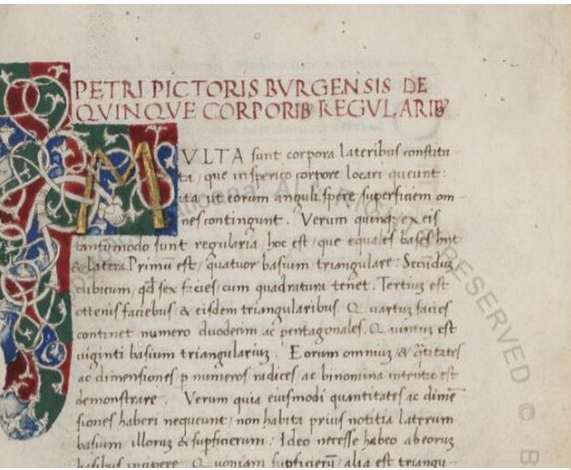 PETRI PICTORIS BVRGENSIS DE
QVINQVE CORPORIB REGVLARIB
MVLTA sunt corpora lateribus constitu
ta, que in sperico corpore locari queunt:
ita ut eorum anguli spere superficiem om
nes contingunt. Verum quinq; ex eis
tantūmodo sunt regularia, hoc est, que equales bases hnt
& latera. Primū est, quatuor basium triangulare: Secūdū
cubicum, qd sex facies cum quadratura tenet. Tertiuz est
ottenis faciebus & eisdem triangularibus. Quartus facies
continet numero duodecim ac pentagonales. Quintus est
uiginti basium triangulariuz. Eorum omniuz & qtitates
ac dimensiones p numeros radices ac binomina intentio est
demonstrare. Verum quia eiusmodi quantitates ac dimē
siones haberi nequeunt, non habita prius notitia laterum
basium illoruz & supficierum: Ideo necesse habeo ab eoruz
basibus incipere. Quoniam supficierū, alia est triangu
RESERVED ©